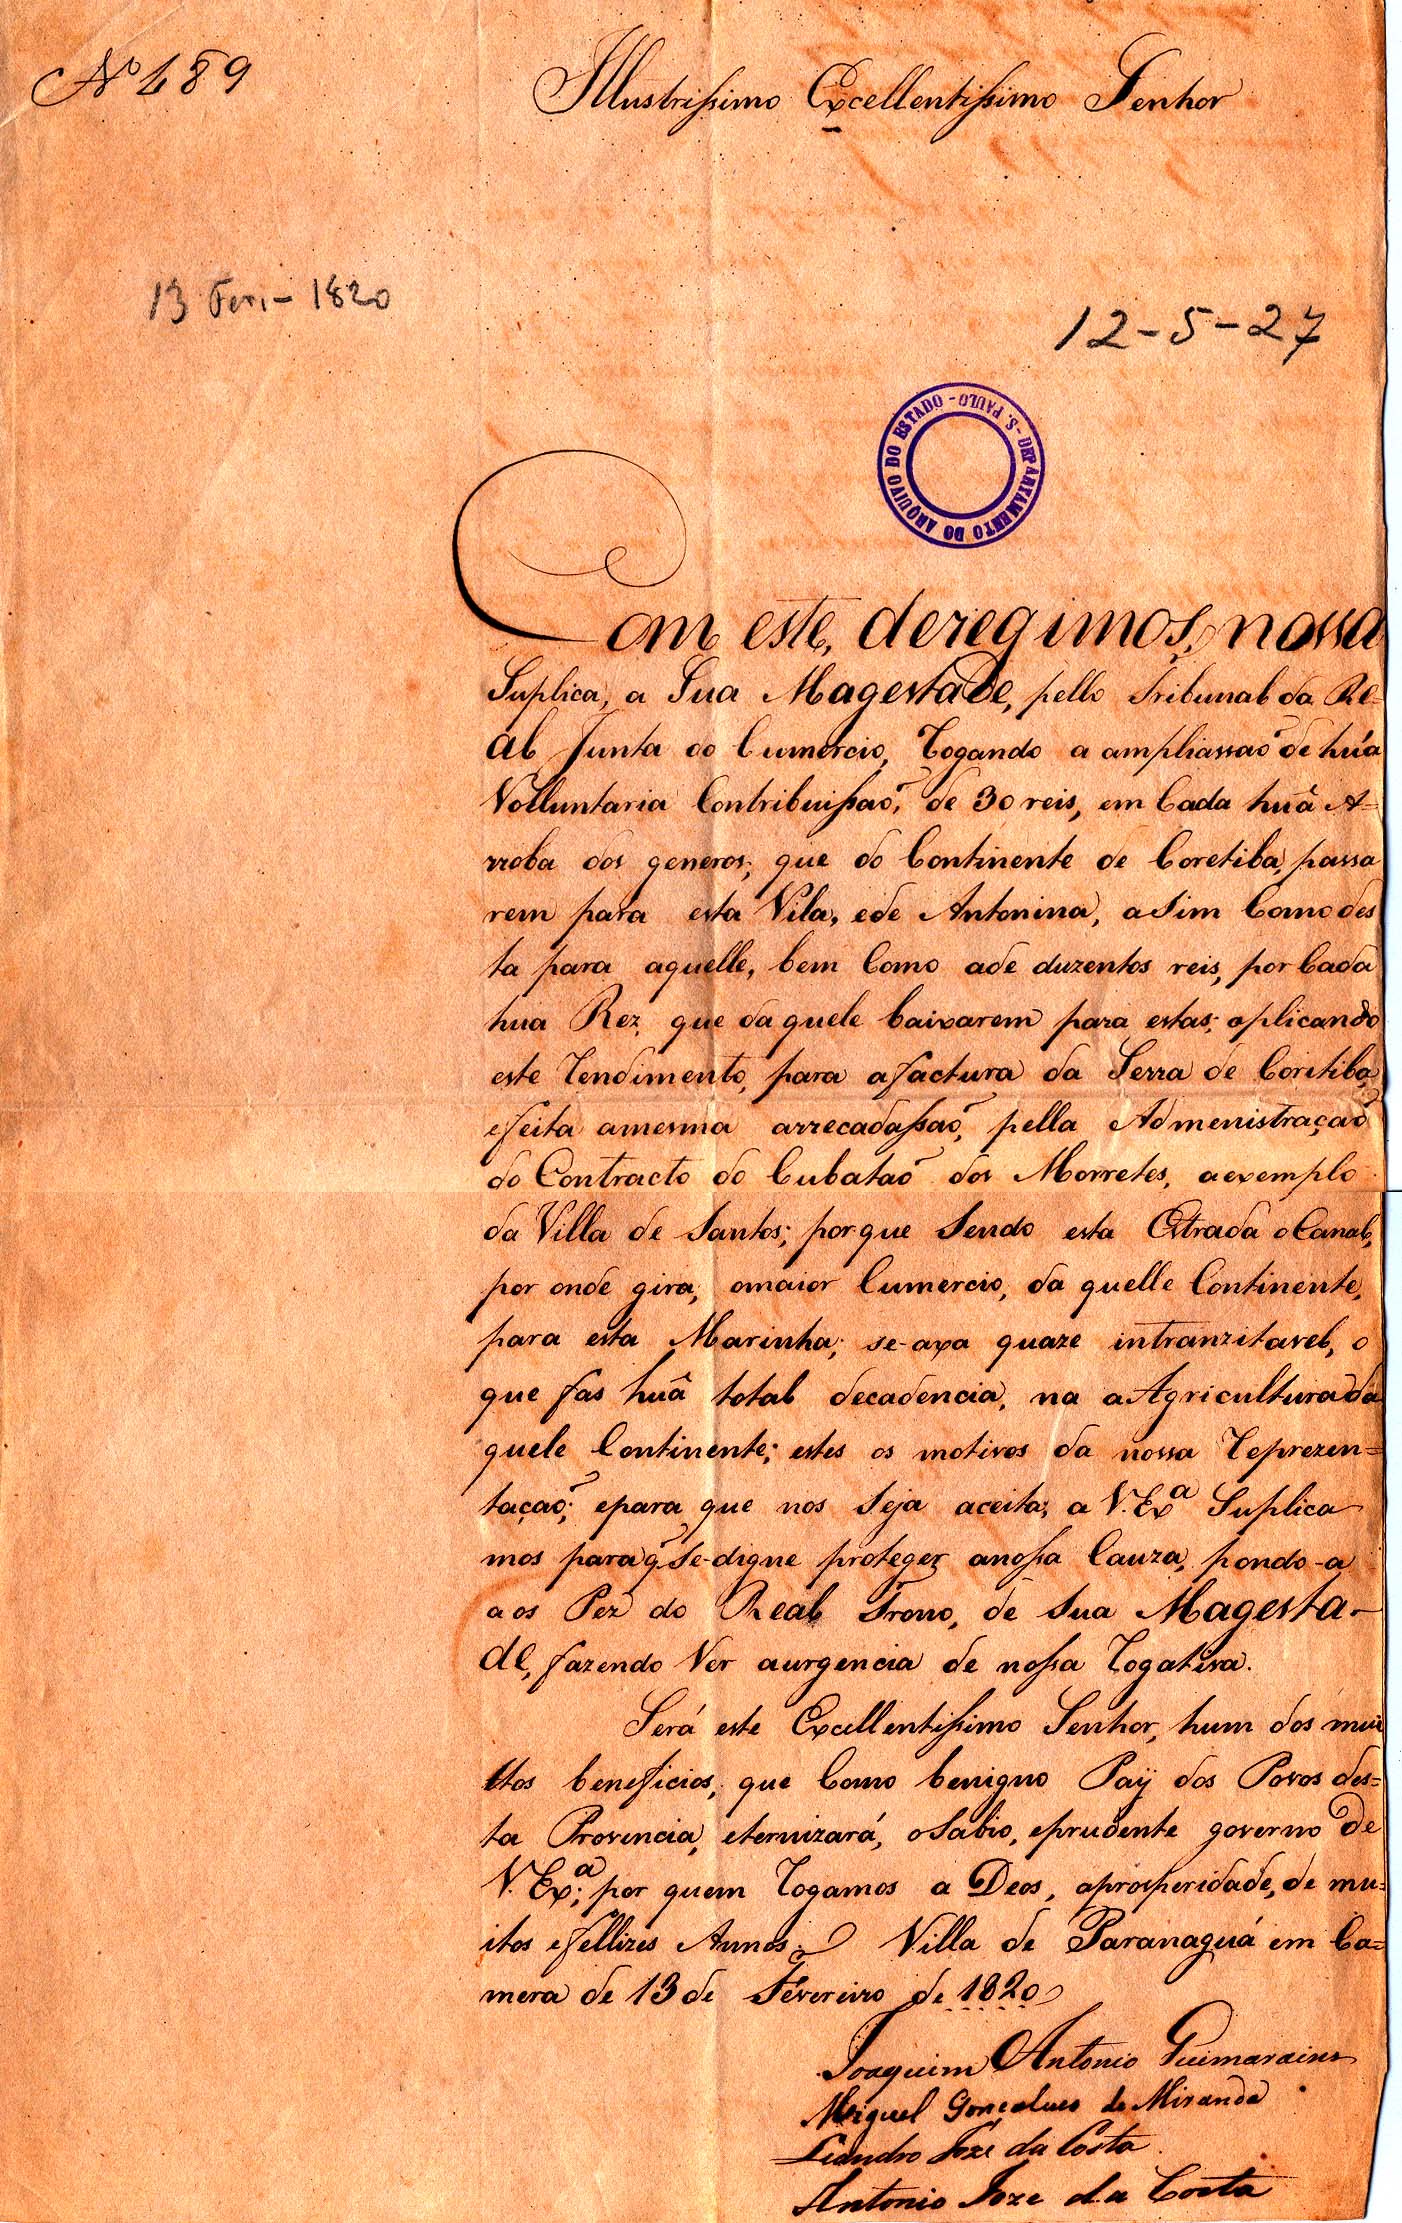 Nº 489
Illustrissimo Excellentissimo Senhor
13 Fev. - 1820
12-5-27
DEPARTAMENTO DO ARQUIVO DO ESTADO - S. PAULO -
Com este, deregimos, nossa
Suplica, a Sua Magestade, pello Tribunal da Re-
al Junta do Cumercio, Rogando a ampliassaõ de huã
Volluntaria Contribuissaõ, de 30 reis, em Cada huã A=
rroba dos generos; que do Continente de Coretiba, passa
rem para esta Vila, ede Antonina, aSim Como des
ta para aquelle, bem Como ade duzentos reis, por Cada
hua Rez, que da quele baixarem para estas; aplicando
este Rendimento, para afactura da Serra de Coritiba,
efeita amesma arrecadassaõ, pella Admenistraçaõ
do Contracto do Cubataõ dos Morretes, aexemplo
da Villa de Santos; porque Sendo esta Estrada oCanal,
por onde gira, omaior Cumercio, da quelle Continente,
para esta Marinha; se-axa quaze intranzitavel, o
que fas huã total decadencia, na aAgricultura da
quele Continente; estes os motivos da nossa Reprezen=
taçaõ; epara que nos Seja aceita; a V. Exª Suplica
mos para q̃ Se-digne proteger anossa Cauza, pondo-a
aos Pez do Real Trono, de Sua Magesta-
de, fazendo Ver aurgencia de nossa Rogativa.
Será este Excellentissimo Senhor, hum dos mui
ttos beneficios, que Como benigno Paÿ dos Povos des=
ta Provincia, eternizará, oSabio, eprudente governo de
V. Exª; por quem Rogamos a Deos, aprosperidade, de mu=
itos efellizes Annos. Villa de Paranaguá em Ca=
mera de 13 de Fevereiro de 1820
Joaquim Antonio Guimarains
Miguel Gonçalues de Miranda
Leandro Joze da Costa
Antonio Joze da Costa